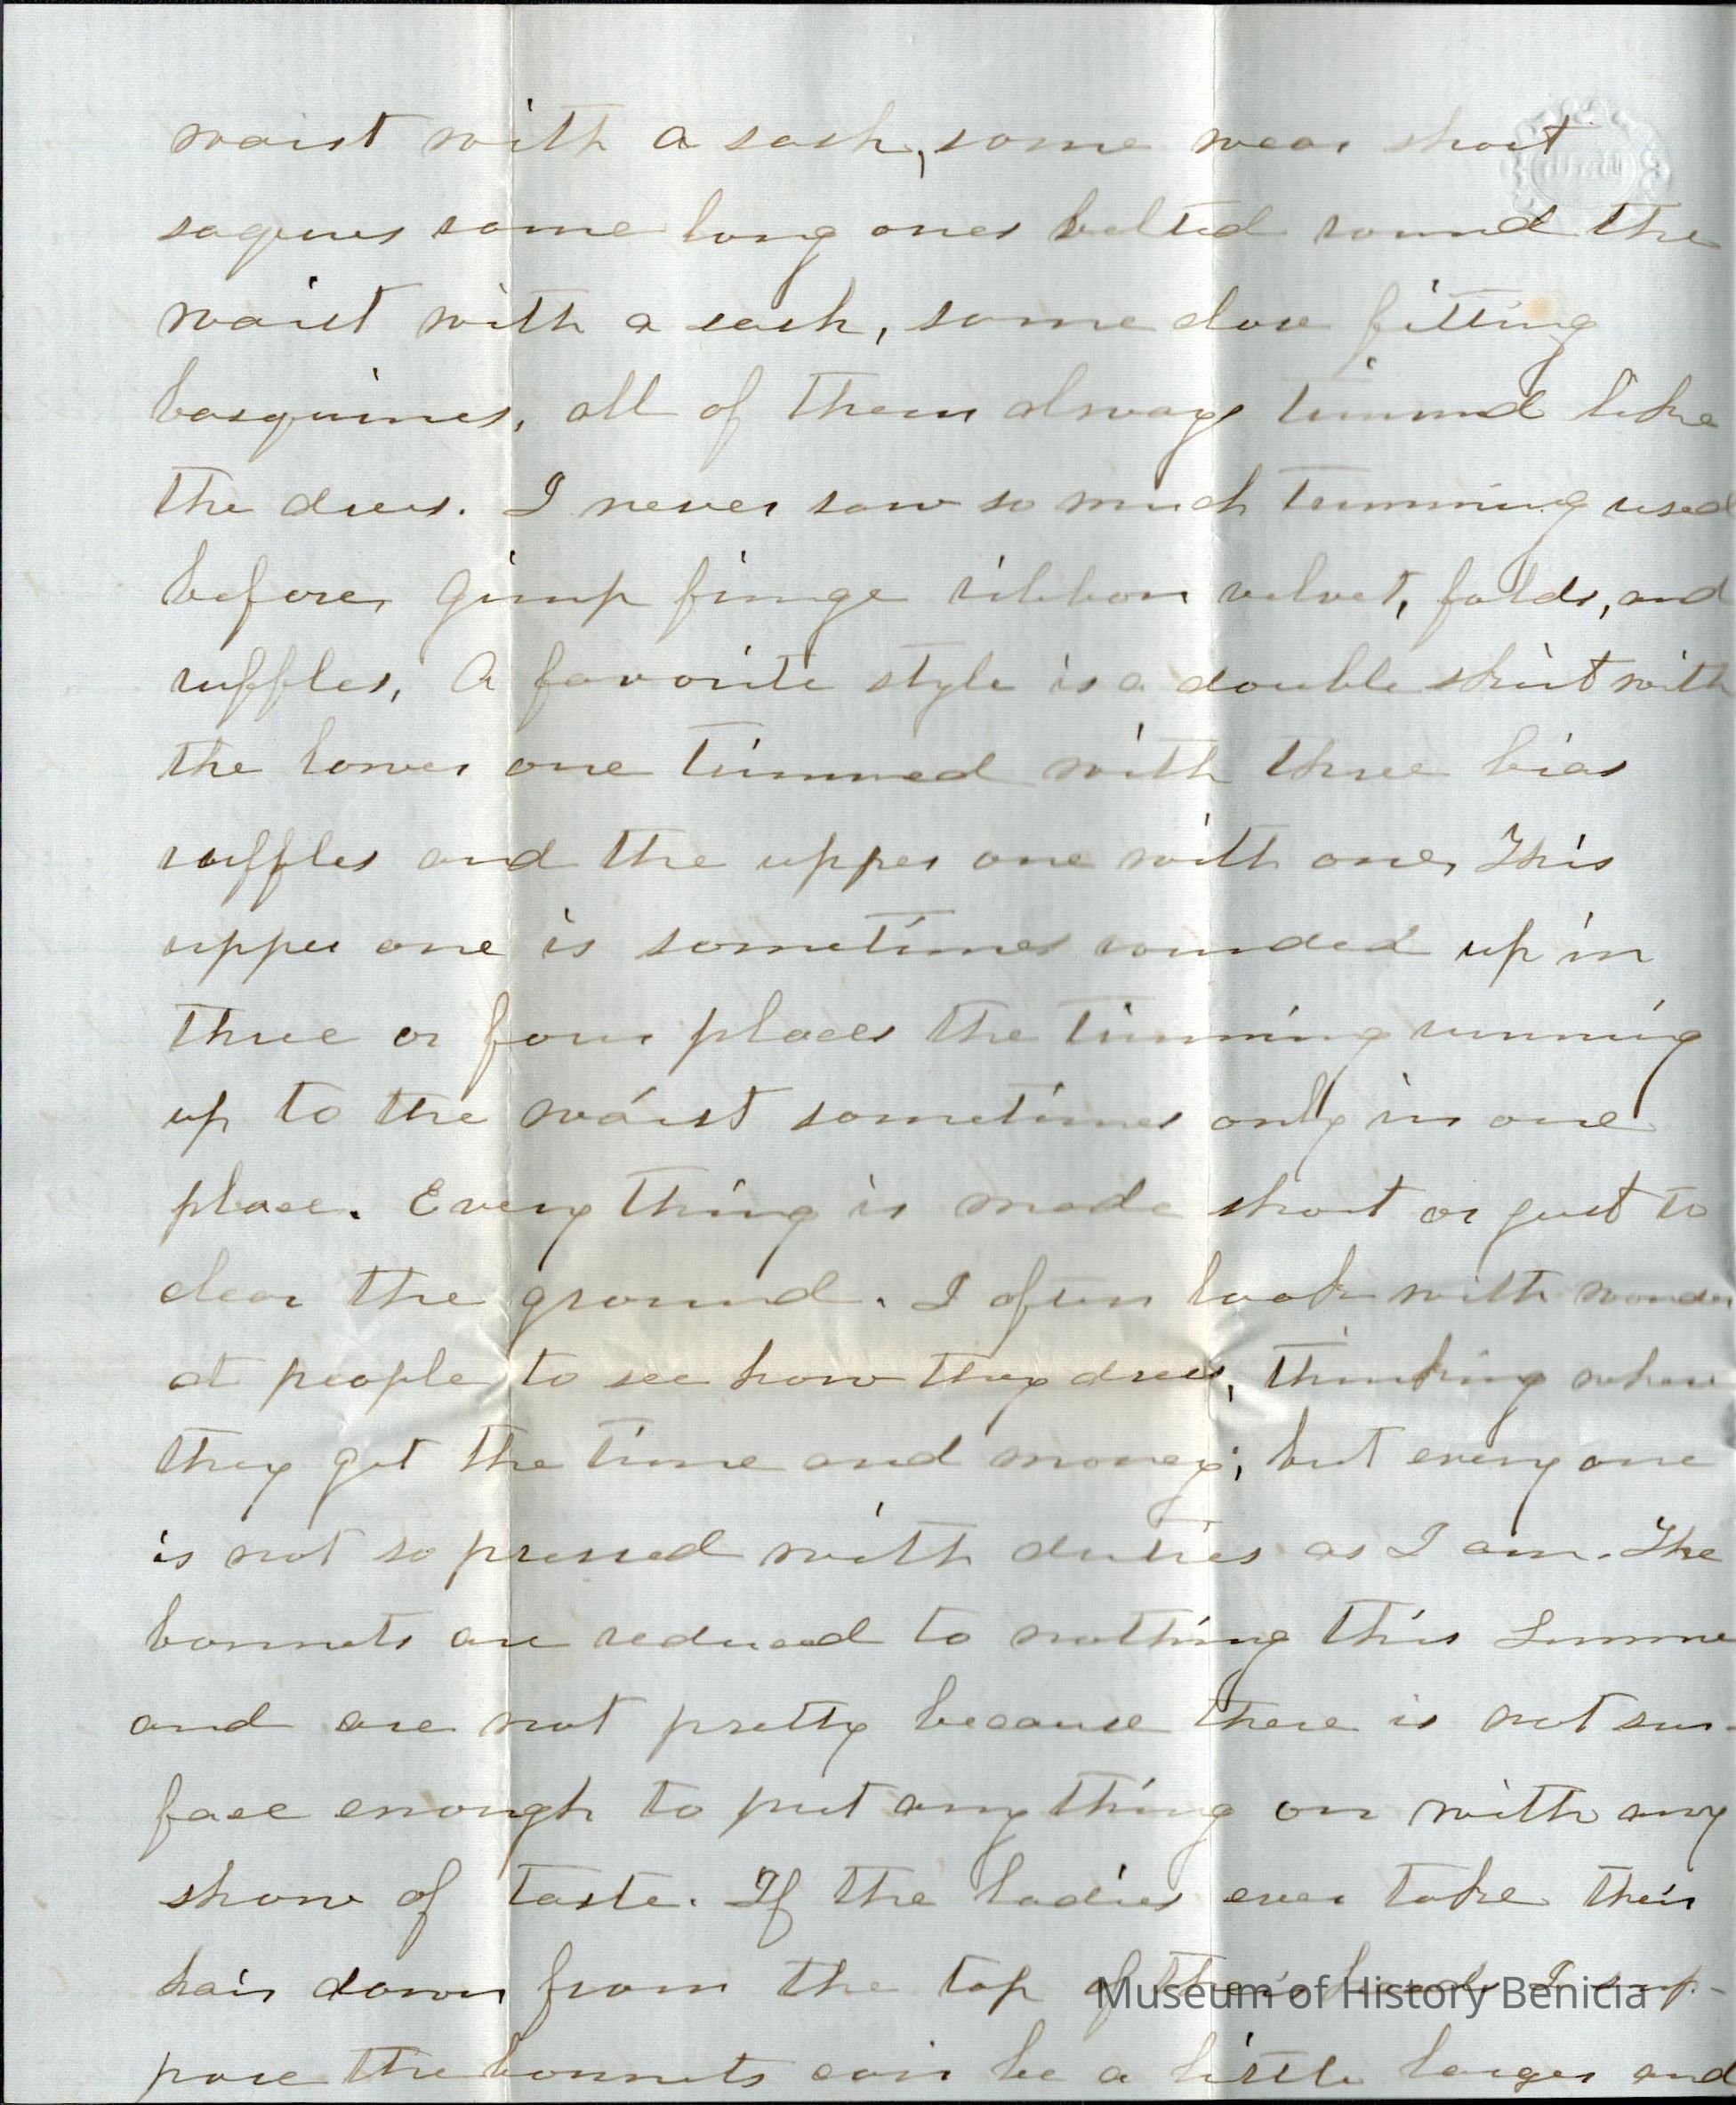 waist with a sash, some wear short
saques some long ones belted round the
waist with a sash, some close fitting
basquines, all of them always trimmd like
the dress. I never saw so much trimming used
before, gimp fringe ribbon velvet, folds, and
ruffles, A favorite style is a double skirt with
the lower one trimmed with three bias
ruffles and the upper one with one, This
upper one is sometimes rounded up in
three or four places the trimming running
up to the waist sometimes only in one
place. Every thing is made short or just to
clear the ground. I often look with wonder
at people to see how they dress, thinking where
they get the time and money; but every one
is not so pressed with duties as I am. The
bonnets are reduced to nothing this Summer
and are not pretty because there is not sur-
face enough to put any thing on with any
show of taste. If the ladies ever take their
hair down from the top of their heads I sup-
pose the bonnets can be a little larger and
Museum of History Benicia